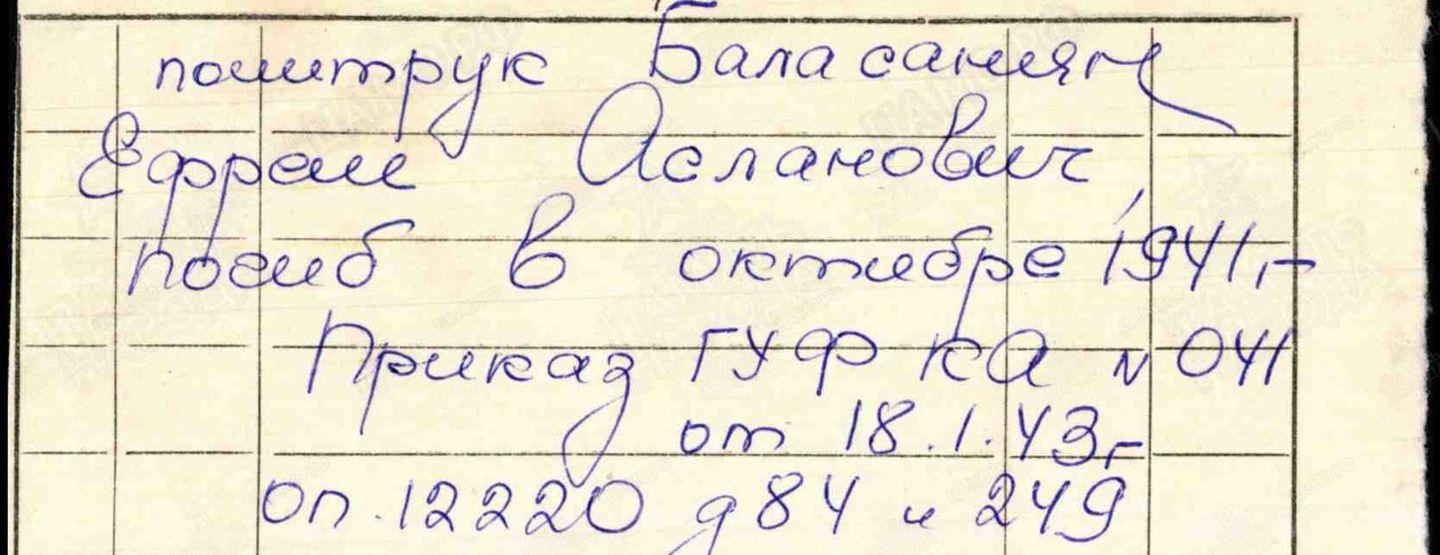 политрук Баласанян
Ефрем Асланович,
погиб в октябре 1941г
Приказ ГУФ КА N 041
от 18.1.43г
оп.12220 д84 л 249